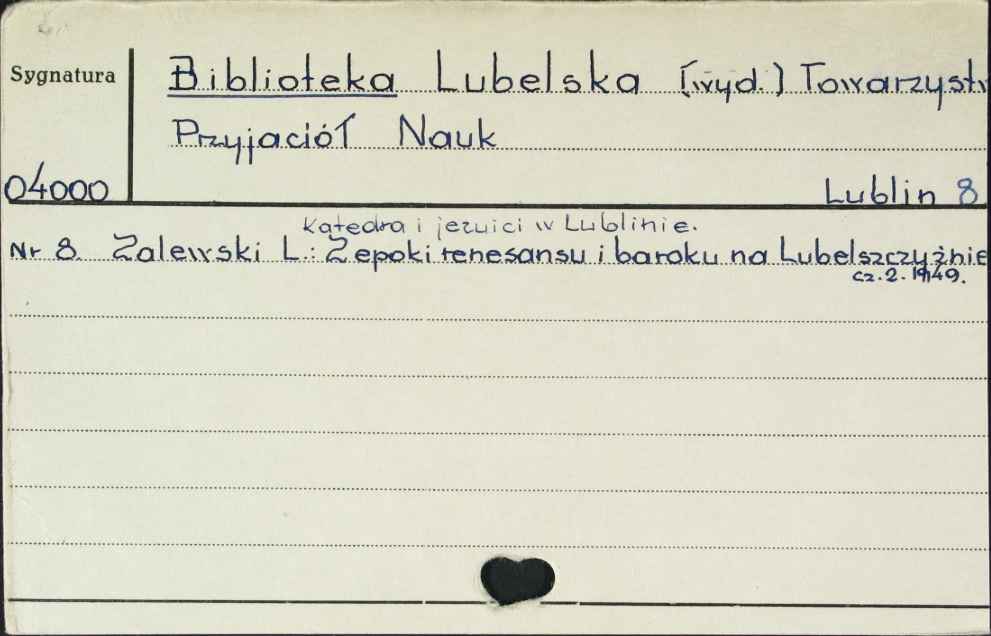 Sygnatura
Biblioteka Lubelska [wyd.] Towarzystw
Przyjaciół Nauk
04000
Lublin 8
Katedra i jezuici w Lublinie.
Nr 8. Zalewski L.: Z epoki renesansu i baroku na Lubelszczyźnie
cz. 2. 1949.